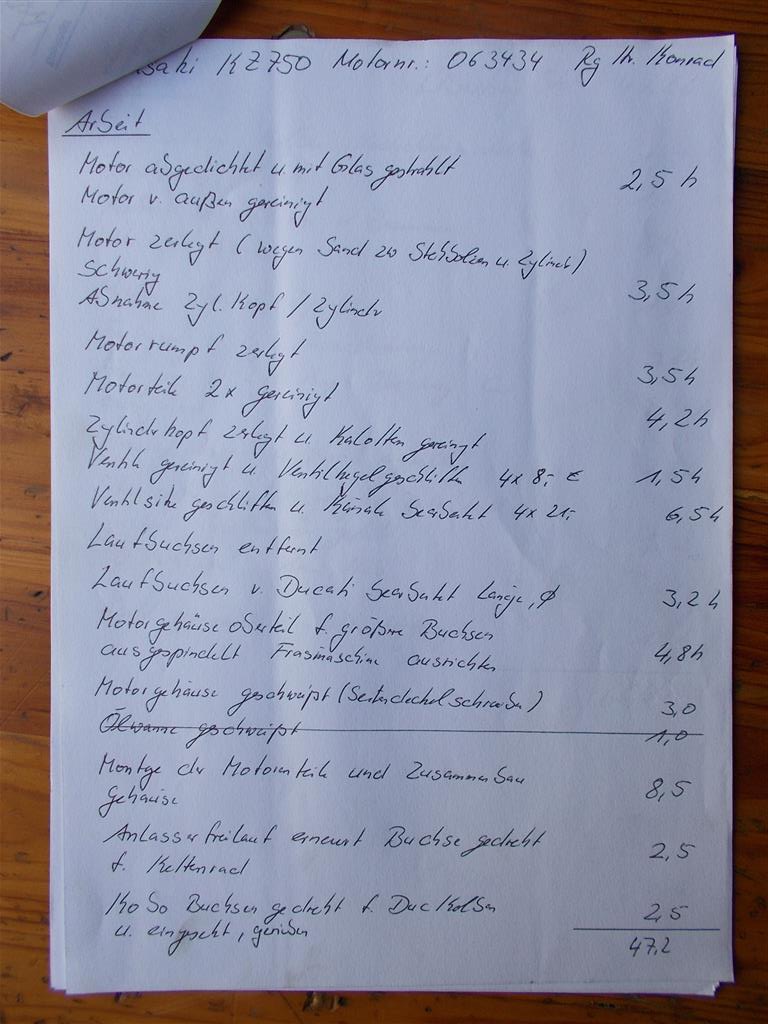 saki KZ750 Motornr.: 063434 Rg Hr. Konrad
Arbeit
Motor abgedichtet u. mit Glas gestrahlt 2,5 h
Motor v. außen gereinigt
Motor zerlegt (wegen Sand zw Stehbolzen u. Zylinder)
schwierig 3,5 h
Abnahme Zyl. Kopf / Zylinder
Motorrumpf zerlegt 3,5 h
Motorteile 2x gereinigt 4,2 h
Zylinderkopf zerlegt u. Kalotten gereinigt
Ventile gereinigt u. Ventilkegel geschliffen 4x 8,- € 1,5 h
Ventilsitze geschliffen u. Kanäle bearbeitet 4x 21,- 6,5 h
Laufbuchsen entfernt
Laufbuchsen v. Ducati bearbeitet Länge, Ø 3,2 h
Motorgehäuse oberteil f. größere Buchsen
ausgespindelt Fräsmaschine ausrichten 4,8 h
Motorgehäuse geschweißt (Seitendeckelschrauben) 3,0
Ölwanne geschweißt 1,0
Montge der Motorenteile und Zusammenbau
Gehäuse 8,5
Anlasserfreilauf erneuert Buchse gedreht
f. Kettenrad 2,5
KoBo Buchsen gedreht f. Duc Kolben 2,5
u. eingesetzt, gerieben
47,2